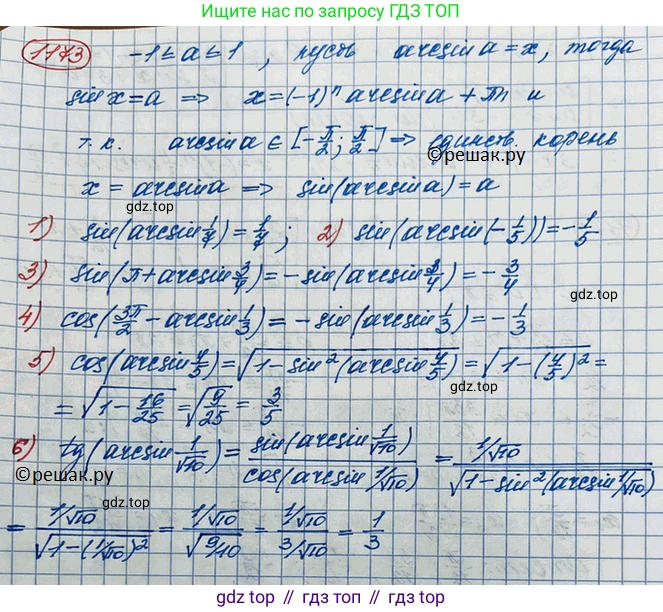 Убедитесь по запросу ГДЗ ТОП
1173 -1 ≤ a ≤ 1, пусть arcsin a = x, тогда
sin x = a => x = (-1)ⁿ arcsin a + πn и
т.к. arcsin a ∈ [-π/2; π/2] => единств. корень
©решак.ру
x = arcsin a => sin(arcsin a) = a
gdz.top
gdz.top
1) sin(arcsin 1/7) = 1/7; 2) sin(arcsin(-1/5)) = -1/5
3) sin(π + arcsin 3/4) = -sin(arcsin 3/4) = -3/4
4) cos(3π/2 - arcsin 1/3) = -sin(arcsin 1/3) = -1/3
5) cos(arcsin 4/5) = √(1 - sin²(arcsin 4/5)) = √(1 - (4/5)²) =
gdz.top
= √(1 - 16/25) = √(9/25) = 3/5
6) tg(arcsin 1/√10) = sin(arcsin 1/√10)/cos(arcsin 1/√10) = (1/√10)/√(1 - sin²(arcsin 1/√10))
©решак.ру
gdz.top
= (1/√10)/√(1 - (1/√10)²) = (1/√10)/√(9/10) = (1/√10)/(3/√10) = 1/3
gdz.top // gdz.top // gdz.top // gdz.top